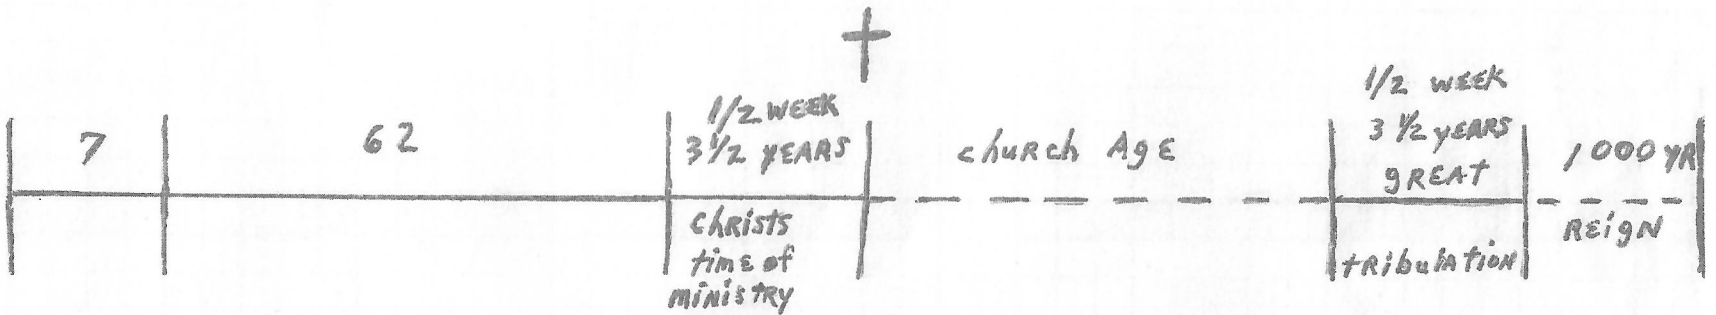 7
62
1/2 WEEK
3 1/2 YEARS
Christs
time of
ministry
church Age
1/2 WEEK
3 1/2 YEARS
gREAT
tRibulation
1,000 YR
REigN